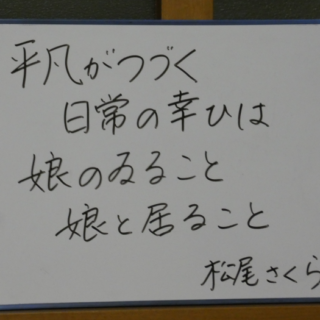 平凡がつづく
日常の幸ひは
娘のゐること
娘と居ること
松尾さくら